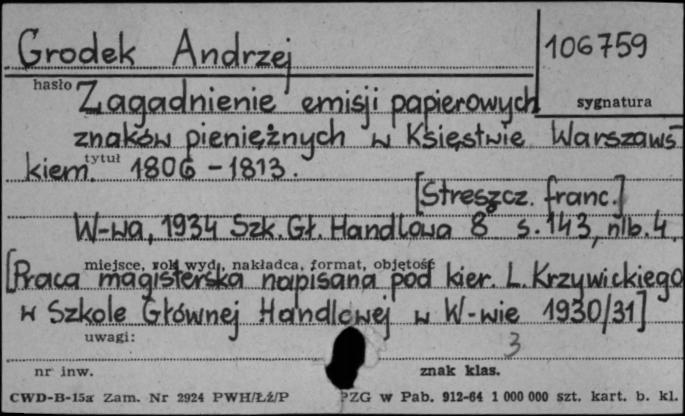 Grodek Andrzej
106759
hasło
Zagadnienie emisji papierowych
sygnatura
znaków pieniężnych w Księstwie Warszaws
tytuł
kiem. 1806 - 1813.
[Streszcz. franc.]
W-wa, 1934 Szk. Gł. Handlowa 8° s. 143, nlb. 4,
miejsce, rok wyd., nakładca, format, objętość
[Praca magisterska napisana pod kier. L. Krzywickiego
w Szkole Głównej Handlowej w W-wie 1930/31]
uwagi:
3
nr inw.
znak klas.
CWD-B-15a Zam. Nr 2924 PWH/Łż/P PZG w Pab. 912-64 1 000 000 szt. kart. b. kl.